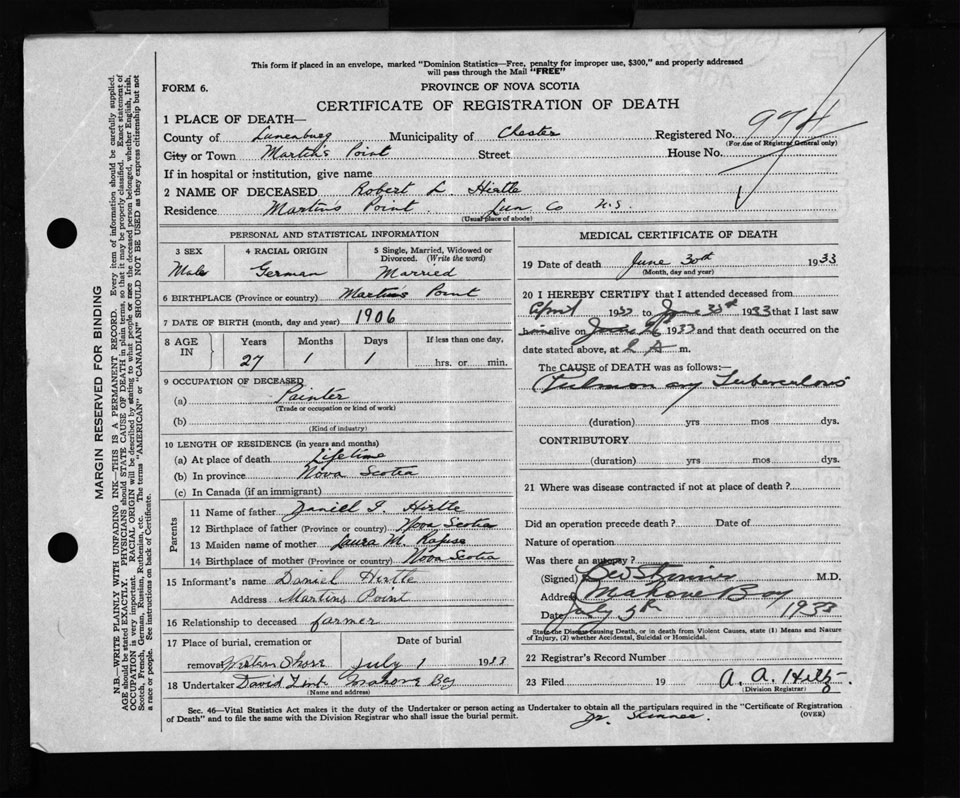 This form if placed in an envelope, marked "Dominion Statistics—Free, penalty for improper use, $300," and properly addressed
will pass through the Mail "FREE"
FORM 6.
PROVINCE OF NOVA SCOTIA
CERTIFICATE OF REGISTRATION OF DEATH
1 PLACE OF DEATH—
County of Lunenburg Municipality of Chester Registered No. 974
(For use of Registrar General only)
City or Town Martin's Point Street House No.
If in hospital or institution, give name
2 NAME OF DECEASED Robert L. Hirtle
Residence Martins Point. Lun Co N.S.
(Usual place of abode)
PERSONAL AND STATISTICAL INFORMATION
3 SEX 4 RACIAL ORIGIN 5 Single, Married, Widowed or
Divorced. (Write the word)
Male German Married
6 BIRTHPLACE (Province or country) Martins Point
7 DATE OF BIRTH (month, day and year) 1906
8 AGE IN Years Months Days If less than one day,
27 1 1 hrs. or min.
9 OCCUPATION OF DECEASED
(a) Painter
(Trade or occupation or kind of work)
(b)
(Kind of industry)
10 LENGTH OF RESIDENCE (in years and months)
(a) At place of death Lifetime
(b) In province Nova Scotia
(c) In Canada (if an immigrant)
Parents
11 Name of father Daniel I. Hirtle
12 Birthplace of father (Province or country) Nova Scotia
13 Maiden name of mother Laura M.
14 Birthplace of mother (Province or country) Nova Scotia
15 Informant's name Daniel Hirtle
Address Martins Point
16 Relationship to deceased farmer
17 Place of burial, cremation or Date of burial
removal Western Shore July 1 1933
18 Undertaker David Mahone Bay
(Name and address)
MEDICAL CERTIFICATE OF DEATH
19 Date of death June 30th 1933
(Month, day and year)
20 I HEREBY CERTIFY that I attended deceased from
April 1933 to June 1933 that I last saw
him alive on June 1933 and that death occurred on the
date stated above, at 2 A m.
The CAUSE of DEATH was as follows:—
Pulmonary Tuberculosis
(duration) yrs mos dys.
CONTRIBUTORY
(duration) yrs. mos. dys.
21 Where was disease contracted if not at place of death?
Did an operation precede death? Date of
Nature of operation
Was there an autopsy?
(Signed) M.D.
Address Mahone Bay
Date July 5th 1933
State the Disease causing Death, or in death from Violent Causes, state (1) Means and Nature
of Injury, (2) whether Accidental, Suicidal or Homicidal.
22 Registrar's Record Number
23 Filed 19 A. A.
(Division Registrar)
Sec. 46—Vital Statistics Act makes it the duty of the Undertaker or person acting as Undertaker to obtain all the particulars required in the "Certificate of Registration
of Death" and to file the same with the Division Registrar who shall issue the burial permit.
(OVER)
MARGIN RESERVED FOR BINDING
N.B.—WRITE PLAINLY WITH UNFADING INK—THIS IS A PERMANENT RECORD. Every item of information should be carefully supplied.
AGE should be stated EXACTLY. PHYSICIANS should STATE CAUSE OF DEATH in plain terms, so that it may be properly classified. Exact statement of
OCCUPATION is very important. RACIAL ORIGIN will be described by stating to what people or race the deceased person belonged, whether English, Irish,
Scotch, French, German, Russian, Ruthenian, etc. The terms "AMERICAN" or "CANADIAN" SHOULD NOT BE USED as they express citizenship but not
a race or people. See instructions on back of Certificate.